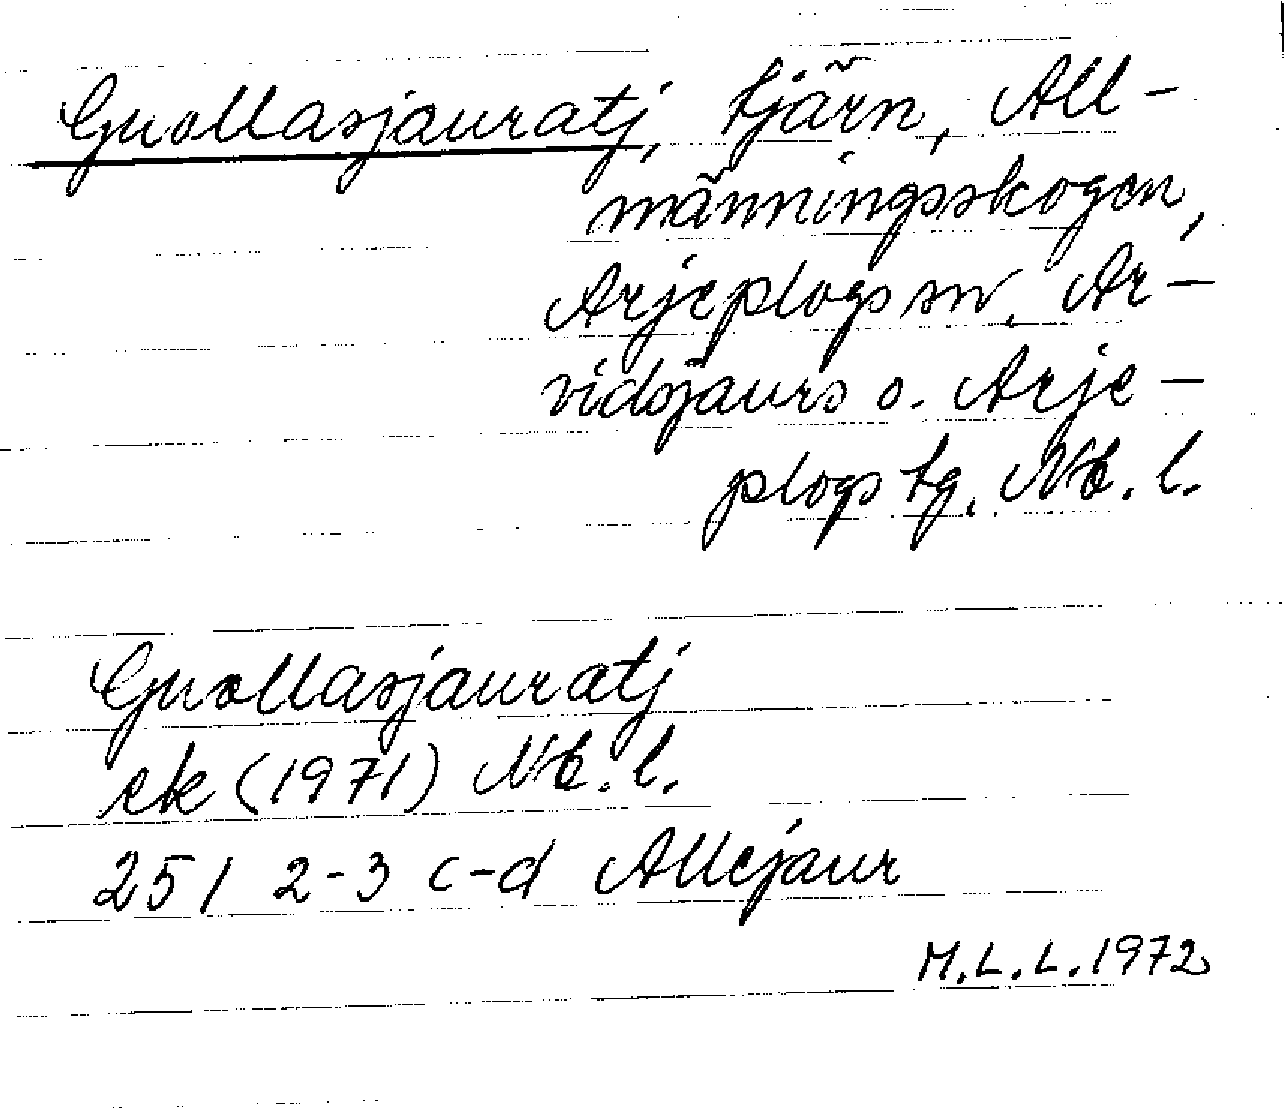 Guollasjauratj, tjärn, All-
männingsskogen,
Arjeplogs sn, Ar-
vidsjaurs o. Arje-
plogs tg, Nb. l.
Guollasjauratj
ek (1971) Nb. l.
25 I 2-3 c-d Allejaur
M.L.L. 1972